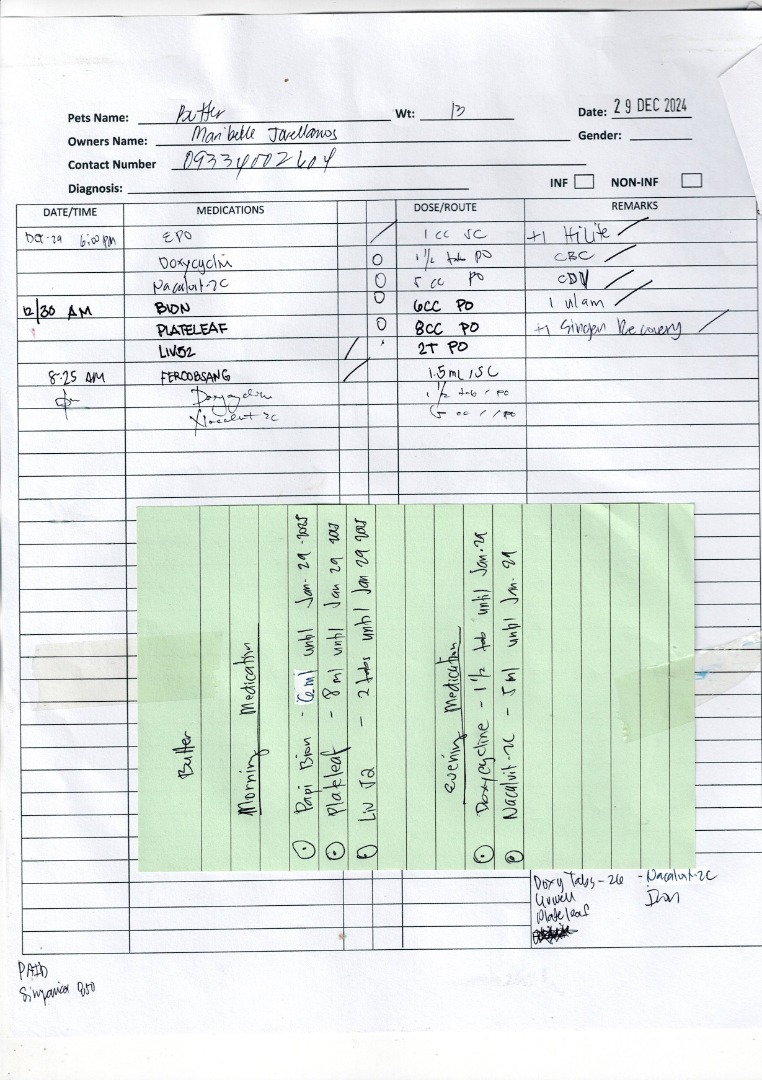 Pets Name: Butter Wt: 13 Date: 29 DEC 2024
Owners Name: Maribelle Jarellanos Gender:
Contact Number 09334002604
Diagnosis: INF NON-INF
DATE/TIME MEDICATIONS DOSE/ROUTE REMARKS
6:00 pm EPO 1 cc SC +1 Hilite
Doxycyclin 1 1/2 tab PO CBC
Nacalvit-2C 5 cc PO CDV
12/30 AM BION 6CC PO 1 ulam
PLATELEAF 8CC PO +1 Recovery
LIV52 2T PO
8:25 AM FEROOBSANG 1.5mL/SC
Doxycyclin 1 1/2 tab / PO
Nacalvit 2C 5 cc / PO
Butter
Morning Medication
Papi Bion - 6ml until Jan-29-2025
Plateleaf - 8ml until Jan 29 2025
Liv 52 - 2 tabs until Jan 29 2025
Evening Medication
Doxycycline - 1 1/2 tab until Jan-29
Nacalvit-2C - 5ml until Jan-29
Doxy Tabs-26 - Nacalvit-2C
Plateleaf
PAID
850